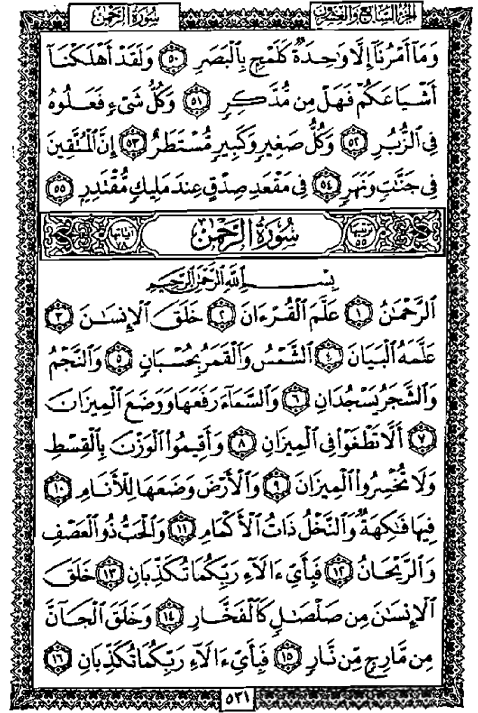 سُورَةُ الرَّحْمَٰن الجُزْءُ السَّابِعُ وَالعِشْرُونَ
وَمَآ أَمْرُنَآ إِلَّا وَٰحِدَةٌ كَلَمْحٍۭ بِٱلْبَصَرِ ٥٠ وَلَقَدْ أَهْلَكْنَآ
أَشْيَاعَكُمْ فَهَلْ مِن مُّدَّكِرٍ ٥١ وَكُلُّ شَىْءٍ فَعَلُوهُ
فِى ٱلزُّبُرِ ٥٢ وَكُلُّ صَغِيرٍ وَكَبِيرٍ مُّسْتَطَرٌ ٥٣ إِنَّ ٱلْمُتَّقِينَ
فِى جَنَّٰتٍ وَنَهَرٍ ٥٤ فِى مَقْعَدِ صِدْقٍ عِندَ مَلِيكٍ مُّقْتَدِرٍۭ ٥٥
ترتيبها ٥٥ سُورَةُ الرَّحْمَٰن آياتها ٧٨
بِسْمِ ٱللَّهِ ٱلرَّحْمَٰنِ ٱلرَّحِيمِ
ٱلرَّحْمَٰنُ ١ عَلَّمَ ٱلْقُرْءَانَ ٢ خَلَقَ ٱلْإِنسَٰنَ ٣
عَلَّمَهُ ٱلْبَيَانَ ٤ ٱلشَّمْسُ وَٱلْقَمَرُ بِحُسْبَانٍ ٥ وَٱلنَّجْمُ
وَٱلشَّجَرُ يَسْجُدَانِ ٦ وَٱلسَّمَآءَ رَفَعَهَا وَوَضَعَ ٱلْمِيزَانَ
٧ أَلَّا تَطْغَوْا۟ فِى ٱلْمِيزَانِ ٨ وَأَقِيمُوا۟ ٱلْوَزْنَ بِٱلْقِسْطِ
وَلَا تُخْسِرُوا۟ ٱلْمِيزَانَ ٩ وَٱلْأَرْضَ وَضَعَهَا لِلْأَنَامِ ١٠
فِيهَا فَٰكِهَةٌ وَٱلنَّخْلُ ذَاتُ ٱلْأَكْمَامِ ١١ وَٱلْحَبُّ ذُو ٱلْعَصْفِ
وَٱلرَّيْحَانُ ١٢ فَبِأَىِّ ءَالَآءِ رَبِّكُمَا تُكَذِّبَانِ ١٣ خَلَقَ
ٱلْإِنسَٰنَ مِن صَلْصَٰلٍ كَٱلْفَخَّارِ ١٤ وَخَلَقَ ٱلْجَآنَّ
مِن مَّارِجٍ مِّن نَّارٍ ١٥ فَبِأَىِّ ءَالَآءِ رَبِّكُمَا تُكَذِّبَانِ ١٦
٥٣١